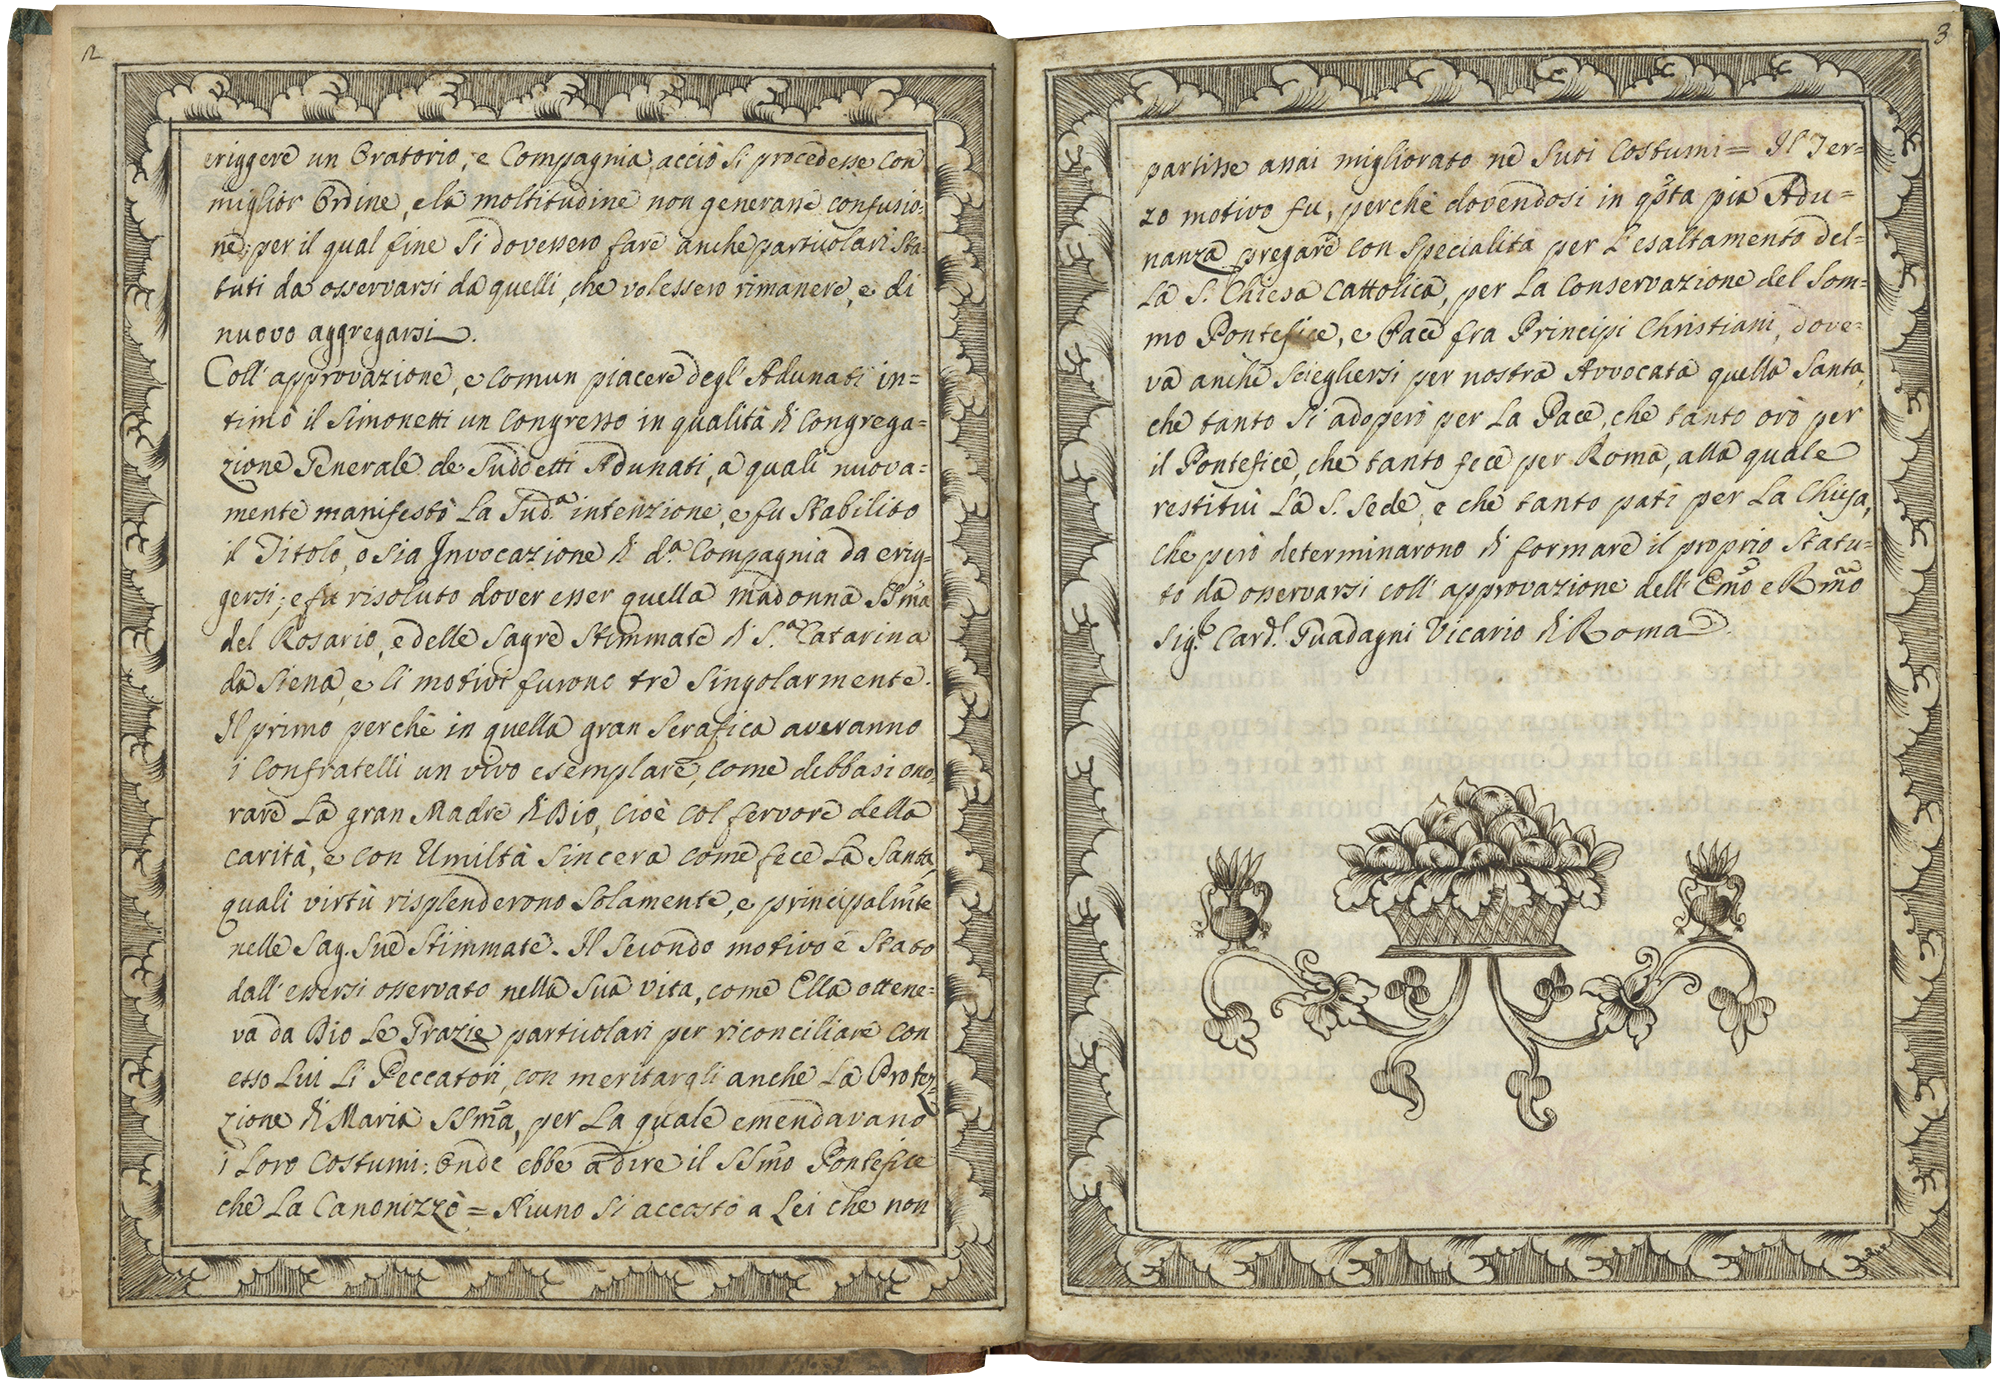 2
eriggere un Oratorio, e Compagnia, acciò si procedesse con
miglior Ordine, e la moltitudine non generasse confusio-
ne; per il qual fine si dovessero fare anche particolari Sta-
tuti da osservarsi da quelli, che volessero rimanere, e di
nuovo aggregarsi.
Coll' approvazione, e comun piacere degl' Adunati in=
timò il Simonetti un Congresso in qualità di Congrega=
zione Generale de Suddetti Adunati, a quali nuova=
mente manifestò la Sudª intenzione, e fu Stabilito
il Titolo, o sia Invocazione di dª Compagnia da erig-
gersi; e fu risoluto dover esser quella Madonna SSm̃a
del Rosario, e delle Sagre Stimmate di S.ª Catarina
da Siena, e li motivi furono tre Singolarmente.
Il primo perchè in quella gran Serafica averanno
i Confratelli un vivo esemplare, come debbasi ono-
rare La gran Madre di Dio, cioè col fervore della
carità, e con Umiltà Sincera come fece La Santa,
quali virtù risplenderono Solamente, e principalm̃te
nelle Sag. Sue Stimmate. Il Secondo motivo è Stato
dall' essersi osservato nella Sua vita, come Ella ottene=
va da Dio Le Grazie particolari per riconciliare con
esso Lui Li Peccatori, con meritargli anche La Protez-
zione di Maria SSm̃a, per La quale emendavano
i Loro Costumi: Onde ebbe a dire il SSm̃o Pontefice
che La Canonizzò = Niuno Si accostò a Lei che non
3
partisse assai migliorato ne Suoi Costumi = Il Ter=
zo motivo fu, perchè dovendosi in qs̃ta pia Adu=
nanza pregare con Specialità per L'esaltamento del=
La S. Chiesa Cattolica, per La Conservazione del Som=
mo Pontefice, e Pace fra Principi Christiani, dove=
va anche Sciegliersi per nostra Avvocata quella Santa,
che tanto Si adoperò per La Pace, che tanto orò per
il Pontefice, che tanto fece per Roma, alla quale
restituì La S. Sede, e che tanto patì per La Chiesa,
che però determinarono di formare il proprio Statu=
to da osservarsi coll' approvazione dell' Em̃o e Rm̃o
Sig.r Card.l Guadagni Vicario di Roma.